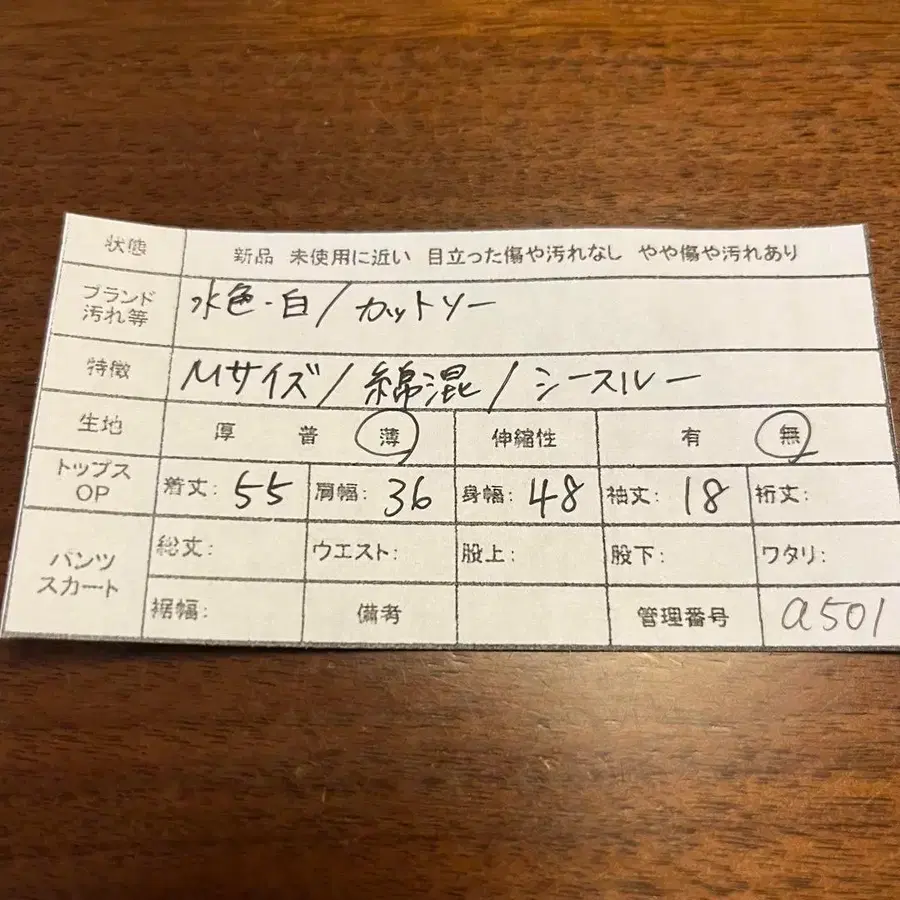 状態 新品 未使用に近い 目立った傷や汚れなし やや傷や汚れあり
ブランド 汚れ等 水色・白/カットソー
特徴 Mサイズ/綿混/シースルー
生地 厚 普 薄 伸縮性 有 無
トップス OP 着丈: 55 肩幅: 36 身幅: 48 袖丈: 18 裄丈:
パンツ スカート 総丈: ウエスト: 股上: 股下: ワタリ:
裾幅: 備考 管理番号 a501